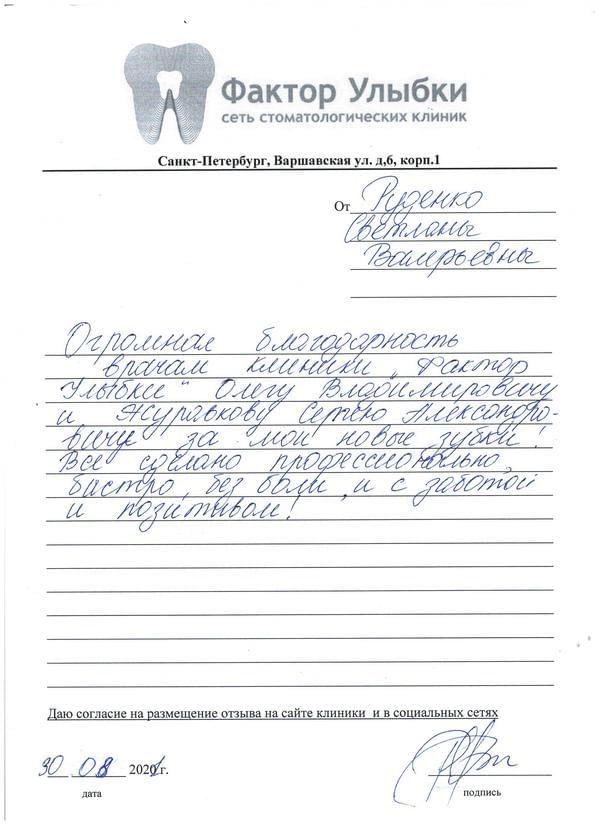 Фактор Улыбки
сеть стоматологических клиник
Санкт-Петербург, Варшавская ул. д,6, корп.1
От Руденко
Светланы
Валерьевны
Огромная благодарность
врачам клиники „Фактор
Улыбки“ Олегу Владимировичу
и Журавкову Сергею Александро-
вичу за мои новые зубки!
Все сделано профессионально,
быстро, без боли, и с заботой
и позитивом!
Даю согласие на размещение отзыва на сайте клиники и в социальных сетях
30 08 2021 г.
дата
подпись